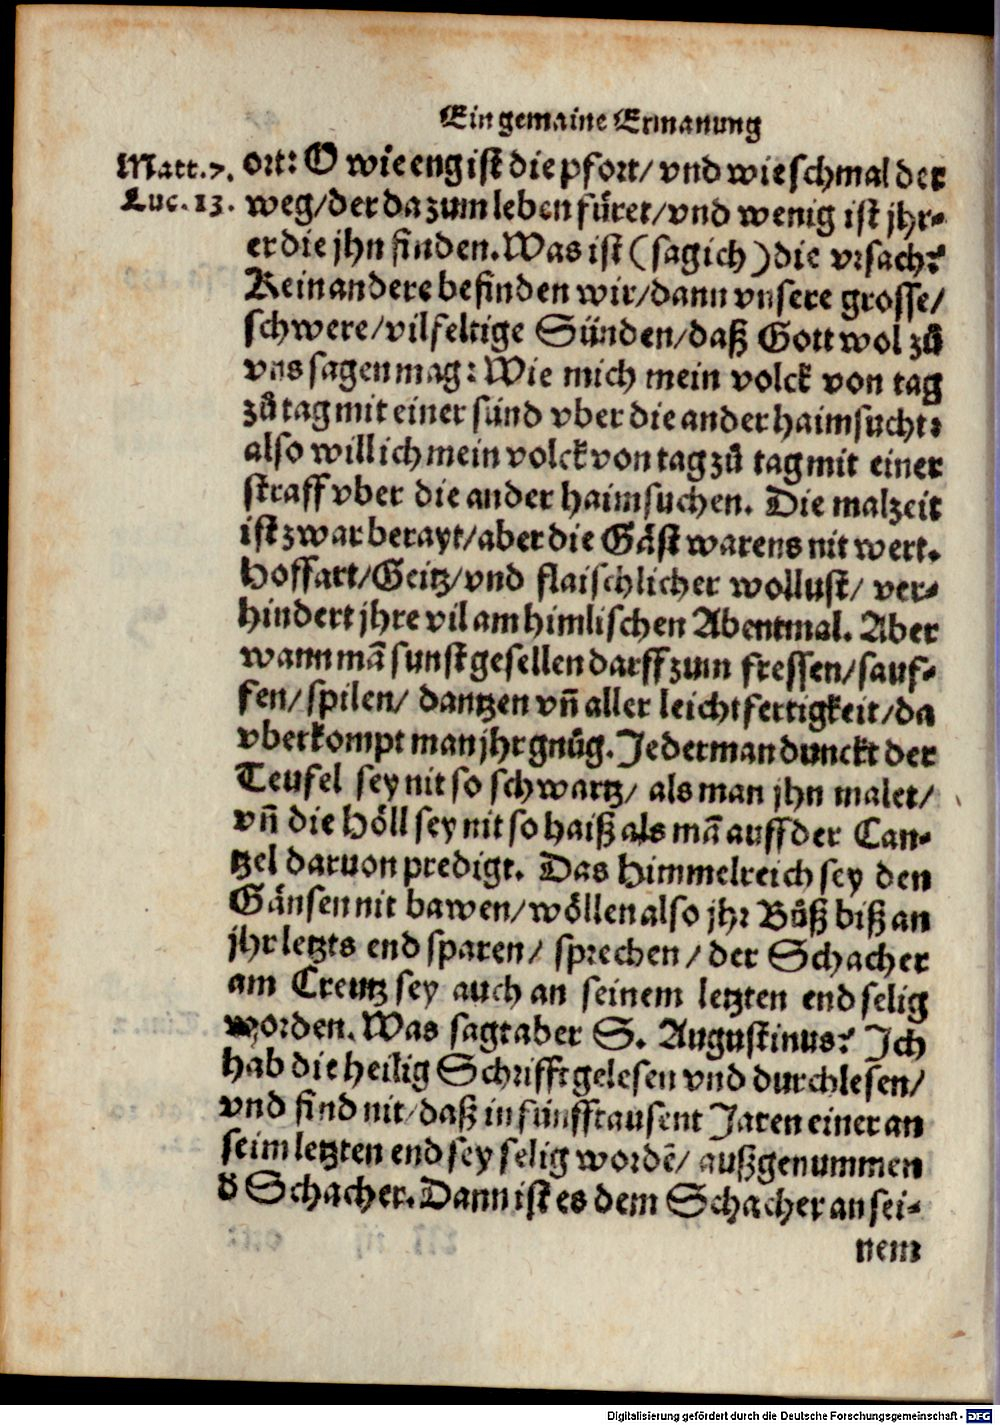 Ein gemaine Ermanung
Matt. 7. ort: O wie eng ist die pfort/ vnd wie schmal der
Luc. 13. weg/ der da zum leben fůret/ vnd wenig ist jhr-
er die jhn finden. Was ist (sag ich) die vrsach?
Kein andere befinden wir/ dann vnsere grosse/
schwere/ vilfeltige Sünden/ daß Gott wol zů
vns sagen mag: Wie mich mein volck von tag
zů tag mit einer sünd vber die ander haimsucht:
also will ich mein volck von tag zů tag mit einer
straff vber die ander haimsuchen. Die malzeit
ist zwar berayt/ aber die Gäst warens nit wert.
Hoffart/ Geitz/ vnd flaischlicher wollust/ ver-
hindert jhre vil am himlischen Abentmal. Aber
wann mã sunst gesellen darff zum fressen/ sauf-
fen/ spilen/ dantzen vñ aller leichtfertigkeit/ da
vberkompt man jhr gnůg. Jederman dunckt der
Teufel sey nit so schwartz/ als man jhn malet/
vñ die Höll sey nit so haiß als mã auff der Can-
tzel daruon predigt. Das Himmelreich sey den
Gänsen nit bawen/ wöllen also jhr Bůß biß an
jhr letzts end sparen/ sprechen/ der Schacher
am Creutz sey auch an seinem letzten end selig
worden. Was sagt aber S. Augustinus? Ich
hab die heilig Schrifft gelesen vnd durchlesen/
vnd find nit/ daß in fünfftausent Jaren einer an
seim letzten end sey selig wordẽ/ außgenummen
d Schacher. Dann ist es dem Schacher an sei-
nem
Digitalisierung gefördert durch die Deutsche Forschungsgemeinschaft - DFG